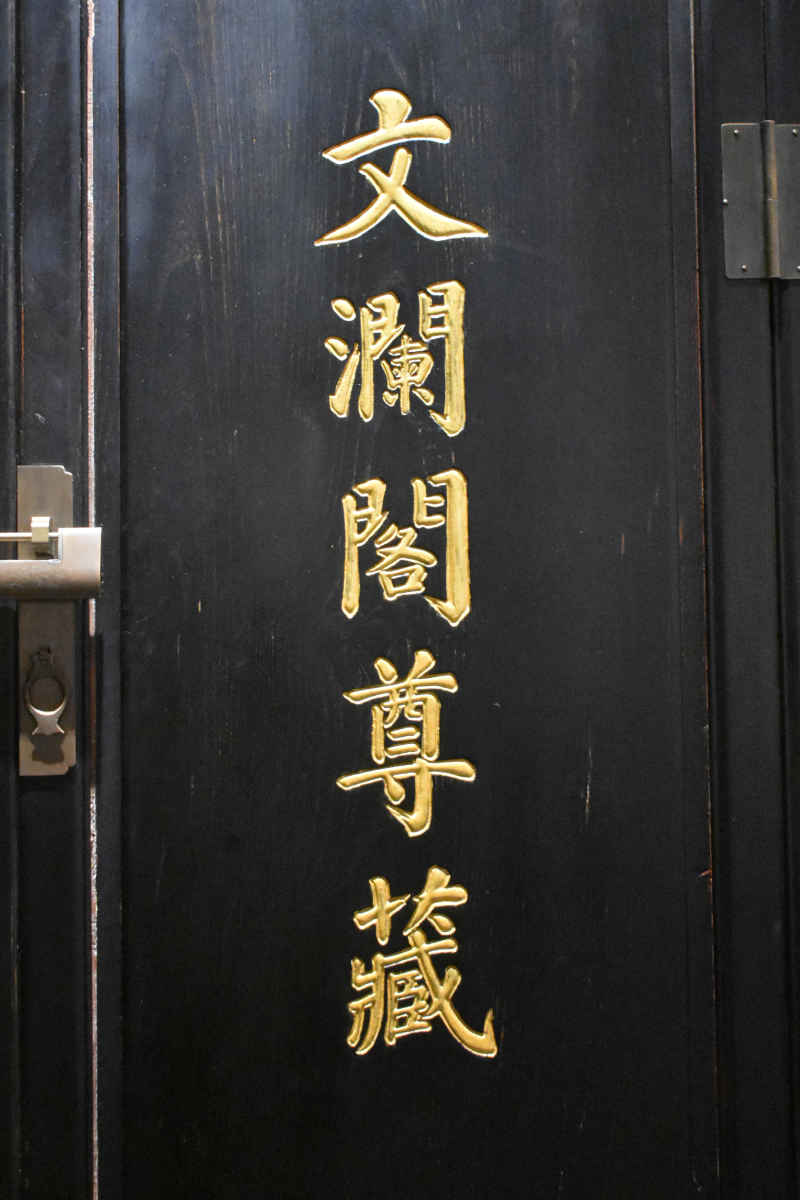 文瀾閣尊藏